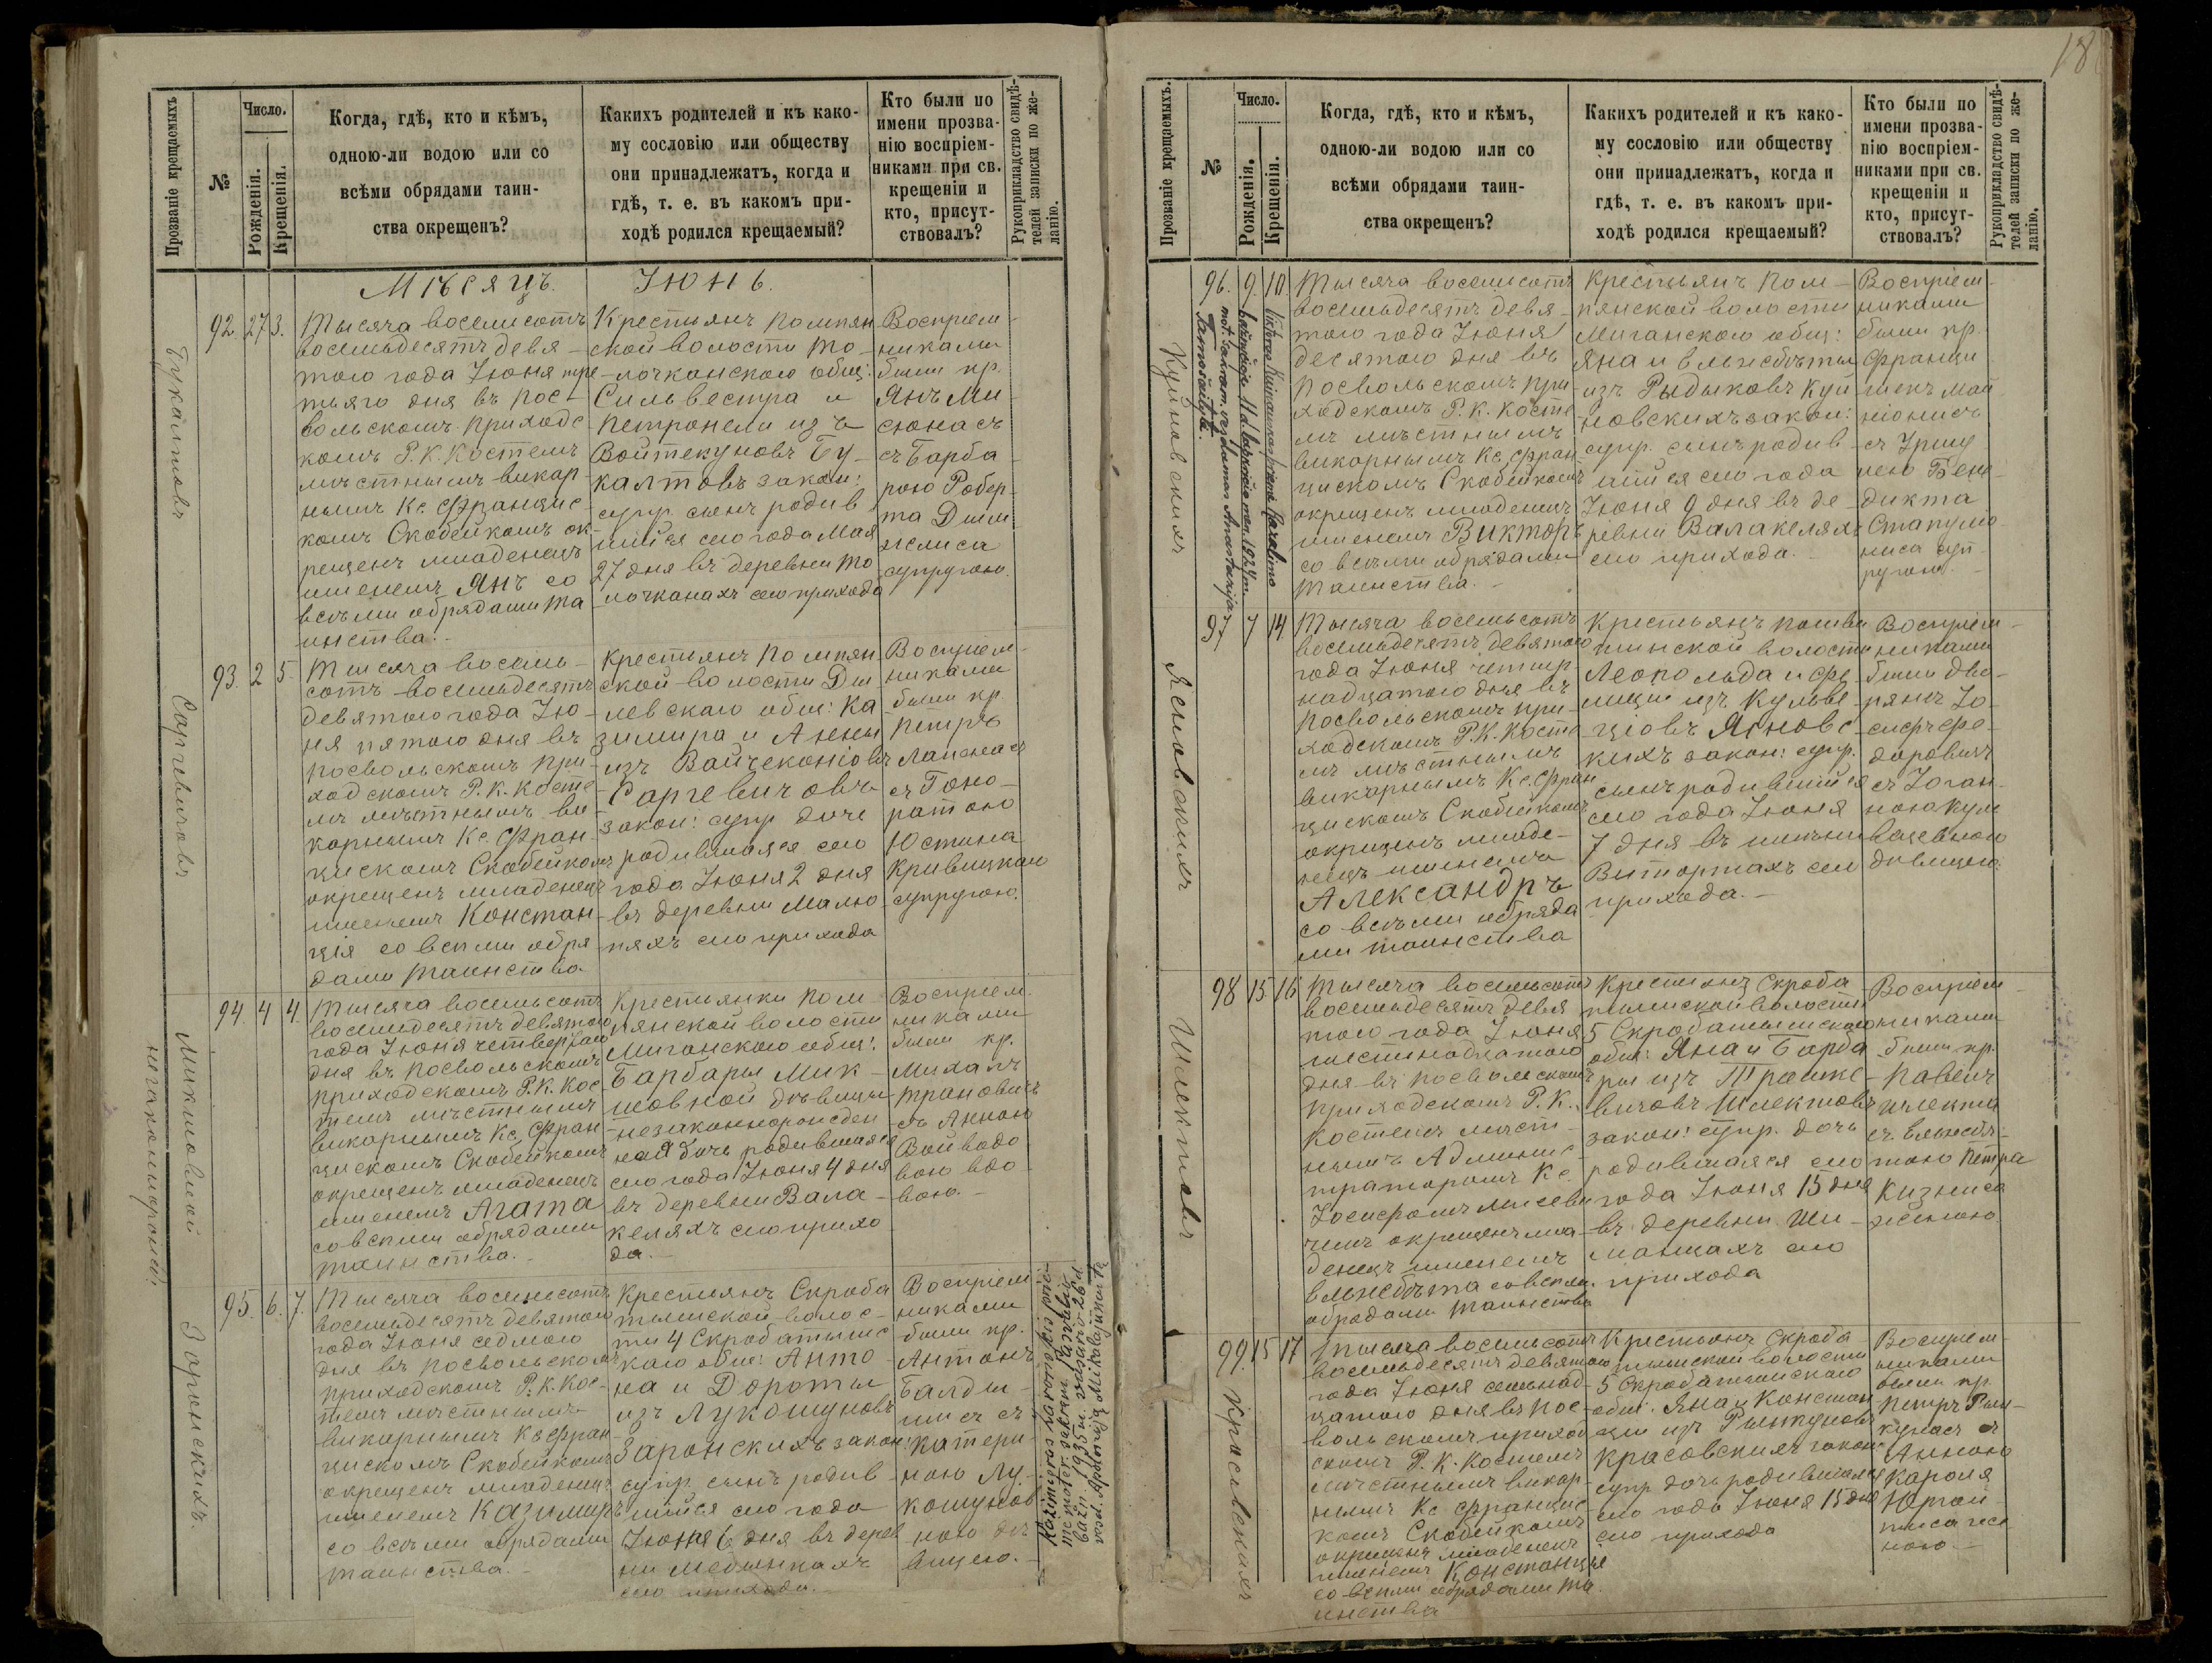 Прозваніе крещаемыхъ
№
Число.
Рожденія.
Крещенія.
Когда, гдѣ, кто и кѣмъ,
одною-ли водою или со
всѣми обрядами таин-
ства окрещенъ?
Какихъ родителей и къ како-
му сословію или обществу
они принадлежатъ, когда и
гдѣ, т. е. въ какомъ при-
ходѣ родился крещаемый?
Кто были по
имени прозва-
нію воспріем-
никами при св.
крещеніи и
кто, присут-
ствовалъ?
Рукоприкладство свидѣ-
телей записки по же-
ланію.
Мѣсяцъ. Іюнь.
Букалтовъ
92. 27 3.
Тысяча восемисотъ
восемьдесятъ девя-
того года Іюня тре-
тьяго дня въ Пос-
вольскомъ приходс
комъ Р. К. Костелѣ
мѣстнымъ викар-
нымъ Кс. Францис-
комъ Скобейкомъ ок-
рещенъ младенецъ
именемъ Янъ со
всѣми обрядами та
инства.
Крестьянъ Помпян
ской волости То-
лочканскаго общ:
Сильвестра и
Петронели изъ
Войтекуновъ Бу-
калтовъ закон:
супр. сынъ родив
шийся сего года Мая
27 дня въ деревни То
лочканахъ сего прихода
Воспріем-
никами
были кр.
Янъ Ми-
сюнасъ
съ Барба-
рою Робер-
та
супругою.
Саргевичовъ
93. 2 5
Тысяча восемь-
сотъ восемьдесятъ
девятого года Ію-
ня пятого дня въ
Посвольскомъ при-
ходскомъ Р. К. Косте
лѣ мѣстнымъ ви-
карнымъ Кс. Фран-
цискомъ Скобейкомъ
окрещенъ младенецъ
именемъ Констан-
ція со всѣми обря
дами таинства
Крестьянъ Помпян
ской волости
общ: Ка
зимира и Анны
изъ Вайчеконіовъ
Саргевичовъ
закон: супр. дочь
родившаяся сего
года Іюня 2 дня
въ деревни Малю-
няхъ сего прихода
Воспріем-
никами
были кр.
Петръ
съ Гоно-
ратою
Юстина
супругою.
Микшовной
94. 4 4.
Тысяча восемьсотъ
восемьдесятъ девятого
года Іюня четвертаго
дня въ Посвольскомъ
приходскомъ Р. К. Кос
телѣ мѣстнымъ
викарнымъ Кс. Фран
цискомъ Скобейкомъ
окрещенъ младенецъ
именемъ Агата
со всѣми обрядами
таинства.
Крестьянки Пом
пянской волости
Миганского общ:
Барбары Мик-
шовной дѣвицы
незаконнорожден
ная дочь родившаяся
сего года Іюня 4 дня
въ деревни Вала-
келяхъ сего прихо
да.
Воспріем
никами
были кр.
Михалъ
съ Анною
Войводо
вою вдо-
вою.
Заронскихъ.
95. 6. 7.
Тысяча восемьсотъ
восемьдесятъ девятого
года Іюня седмого
дня въ Посвольскомъ
приходскомъ Р. К. Кос-
телѣ мѣстнымъ
викарнымъ Кс. Фран
цискомъ Скобейкомъ
окрещенъ младенецъ
именемъ Казимиръ
со всѣми обрядами
таинства.
Крестьянъ Скроба
тышской волос-
ти 4 Скробатышс
каго общ: Анто-
на и Дороты
изъ Лукошуновъ
Заронскихъ закон:
супр. сынъ родив-
шийся сего года
Іюня 6 дня въ дерев
ни Медынкахъ
сего прихода.
Воспріем
никами
были кр.
Антонъ
съ
Катери-
ною Лу-
кошунов
ною дѣ-
вицею.
18
Прозваніе крещаемыхъ.
№
Число.
Рожденія.
Крещенія.
Когда, гдѣ, кто и кѣмъ,
одною-ли водою или со
всѣми обрядами таин-
ства окрещенъ?
Какихъ родителей и къ како-
му сословію или обществу
они принадлежатъ, когда и
гдѣ, т. е. въ какомъ при-
ходѣ родился крещаемый?
Кто были по
имени прозва-
нію воспріем-
никами при св.
крещеніи и
кто, присут-
ствовалъ?
Рукоприкладство свидѣ-
телей записки по же-
ланію.
Куиновскихъ
96. 9. 10.
Тысяча восемьсотъ
восемьдесятъ девя-
того года Іюня
десятого дня въ
Посвольскомъ при
ходскомъ Р. К. Косте-
лѣ мѣстнымъ
викарнымъ Кс. Фран
цискомъ Скобейкомъ
окрещенъ младенецъ
именемъ Викторъ
со всѣми обрядами
таинства.
Крестьянъ Пом-
пянской волости
Миганского общ:
Яна и Эльжбѣты
изъ Рыдыковъ Куи
новскихъ закон:
супр. сынъ родив-
шийся сего года
Іюня 9 дня въ де-
ревни Валакеляхъ
сего прихода.
Воспріем-
никами
были кр.
Францы
Бене-
дикта
суп-
ругою.
Ясновскихъ
97 7 14
Тысяча восемьсотъ
восемьдесятъ девятого
года Іюня четыр
надцатого дня въ
Посвольскомъ при-
ходскомъ Р. К. Косте
лѣ мѣстнымъ
викарнымъ Кс. Фран
цискомъ Скобейкомъ
окрещенъ младе-
нецъ именемъ
Александръ
со всѣми обряда
ми таинства
волости
Леопольда и Фе-
лиціи изъ Кульве
ціовъ Ясновс-
кихъ закон: супр.
сынъ родившийся
сего года Іюня
7 дня въ имѣни
Витортахъ сего
прихода.
Воспріем-
никами
были дво-
рянъ Іо-
сифъ Фе-
доровичъ
съ Іоган-
ною
дѣвицею.
Шлектовъ
98 15 16
Тысяча восемьсотъ
восемьдесятъ девя
того года Іюня
шестнадцатого
дня въ Посвольскомъ
приходскомъ Р. К.
Костелѣ мѣст-
нымъ Админис-
траторомъ Кс.
Іосифомъ
чемъ окрещенъ мла-
денецъ именемъ
Эльжбѣта со всѣми
обрядами таинства
Крестьянъ Скроба
тышской волости
5 Скробатышскаго
общ: Яна и Барба
ры изъ Трашке-
вичовъ Шлектовъ
закон: супр. дочь
родившаяся сего
года Іюня 15 дня
въ деревни Ши-
манцахъ сего
прихода
Воспріем-
никами
были кр.
Павелъ
Шлекта
съ Эльжбѣ-
тою Петра
женою
Красовскихъ
99. 15 17
Тысяча восемьсотъ
восемьдесятъ девятого
года Іюня семьнад-
цатого дня въ Пос-
вольскомъ приход-
скомъ Р. К. Костелѣ
мѣстнымъ викар-
нымъ Кс. Францис-
комъ Скобейкомъ
окрещенъ младенецъ
именемъ Констанція
со всѣми обрядами та
инства
Крестьянъ Скроба
тышской волости
5 Скробатышского
общ: Яна и Констан
ціи изъ Рымкуновъ
Красовскихъ закон:
супр. дочь родившаяся
сего года Іюня 15 дня
сего прихода
Воспріем-
никами
были кр.
Петръ Рым-
кунасъ съ
Анною
Кароля
же-
ною.